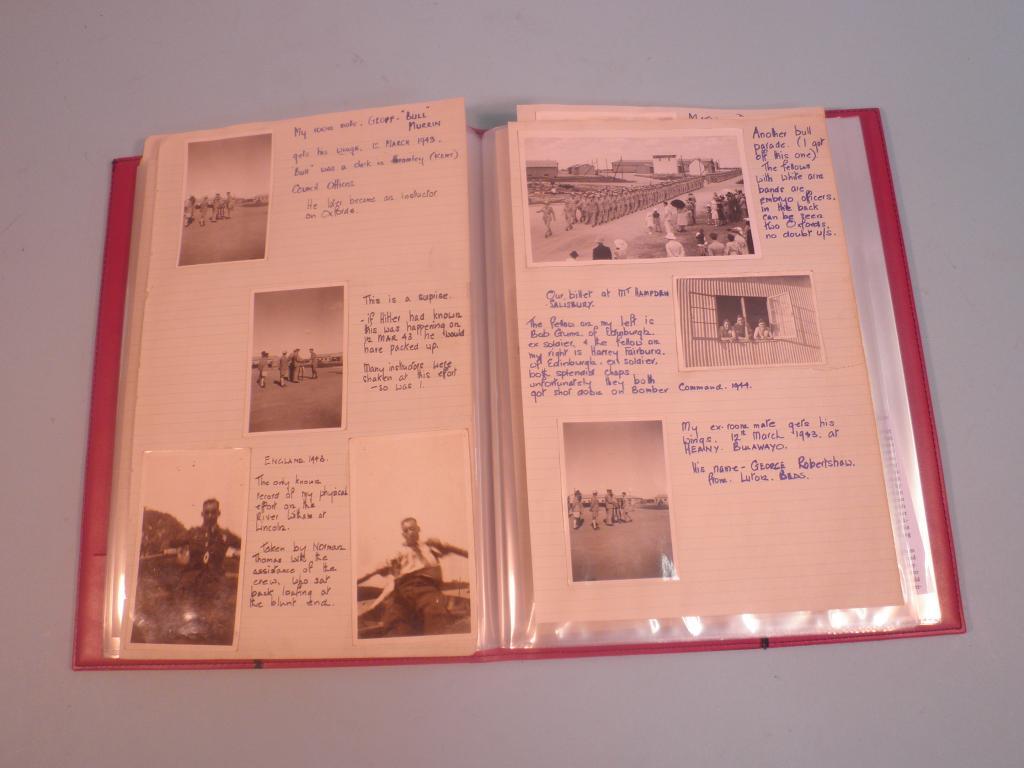 My room mate - GEOFF - "BULL"
MURRIN
gets his wings. 12 MARCH 1943.
"Bull" was a clerk in Bromley (KENT)
Council Offices.
He later became an instructor
on Oxfords.
This is a surprise.
- if Hitler had known
this was happening on
12 MAR 43 he would
have packed up.
Many instructors were
shaken at this effort
- so was I.
ENGLAND 1943.
The only known
record of my physical
effort on the
River Witham at
Lincoln.
Taken by Norman
Thomas with the
assistance of the
crew, who sat
back loafing at
the blunt end.
Another bull
parade. (I got
off this one)
The fellows
with white arm
bands are
embryo officers.
in the back
can be seen
two Oxfords,
no doubt u/s.
Our billet at MT HAMPDEN
SALISBURY.
The fellow on my left is
Bob Gunn of Edinburgh
ex soldier, & the fellow on
my right is Harry Fairburn
of Edinburgh. ex soldier,
both splendid chaps
unfortunately they both
got shot down on Bomber Command. 1944.
My ex-room mate gets his
wings. 12th March 1943. at
HEANY. BULAWAYO.
His name - GEORGE Robertshaw.
from. Luton. BEDS.